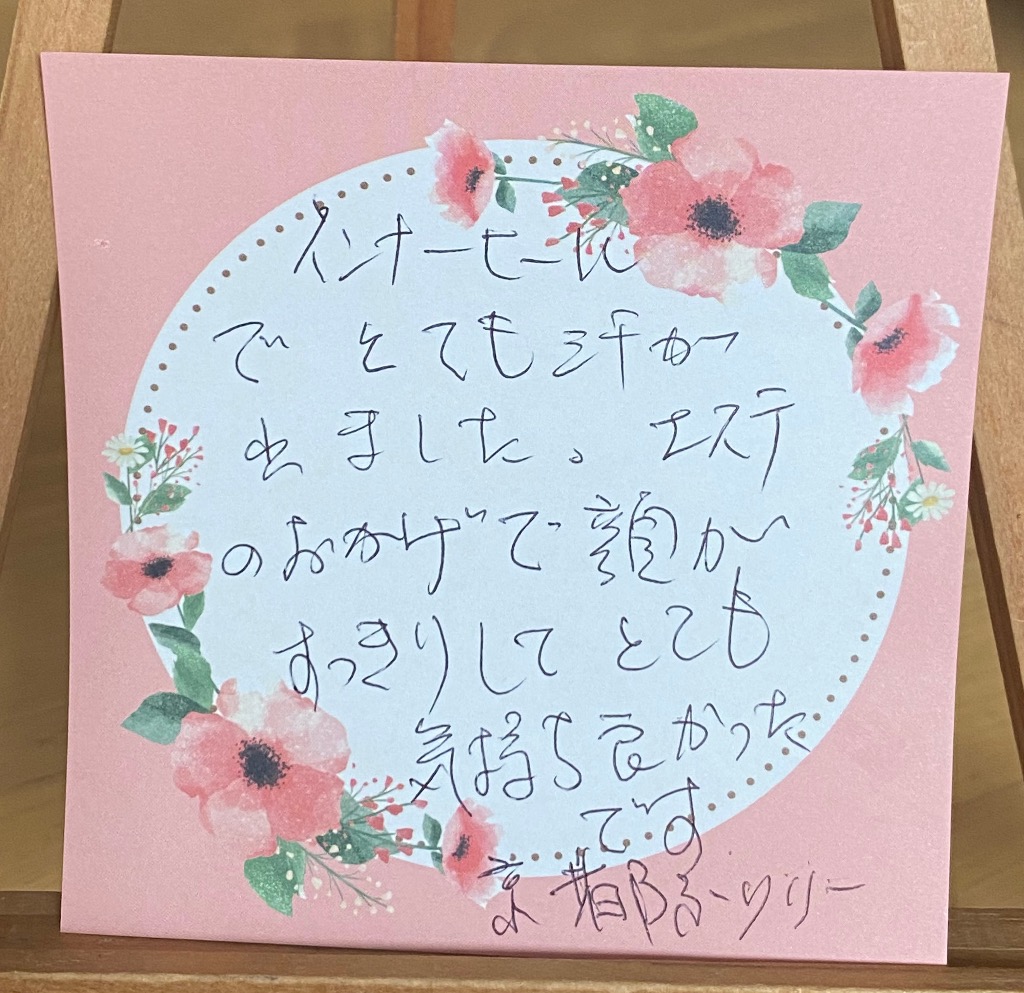 インナーヒール
でとても汗が
出ました。エステ
のおかげで顔が
すっきりしてとても
気持ち良かった
です
京都府